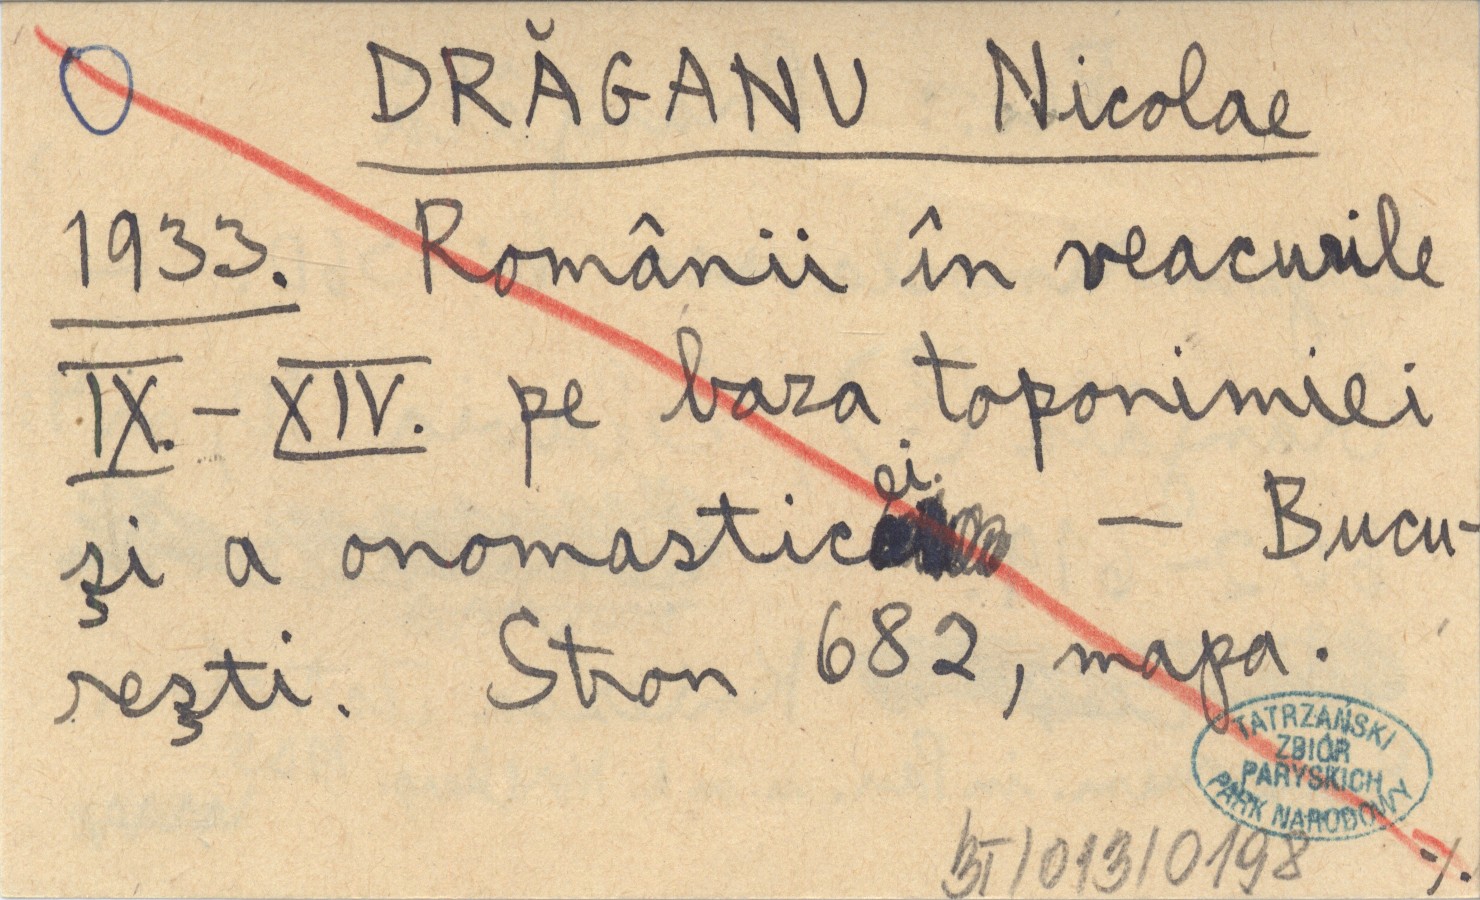 DRĂGANU Nicolae
1933. Românii în veacurile
IX.-XIV. pe baza toponimiei
și a onomasticei. — Bucu-
rești. Stron 682, mapa.
TATRZAŃSKI
ZBIÓR
PARYSKICH
PARK NARODOWY
/013/0198
./.